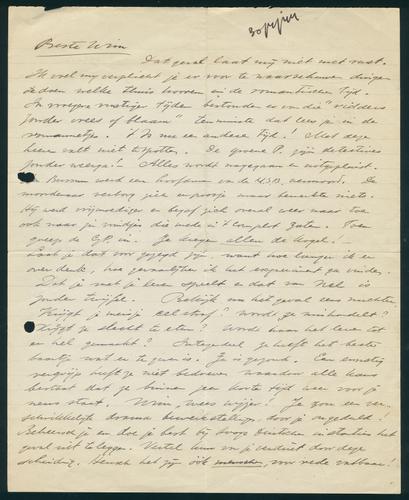 Beste Wim
Dat geval laat mij niet met rust.
Ik voel mij verplicht je er voor te waarschuwen dingen
te doen welke thuis hooren in de romantische tijd.
In vroegere rustiger tijden bestonden er van die "ridders
zonder vrees of blaam" tenminste dat lees je in de
't Is nu een andere tijd! Met deze
heeren valt niet te spotten. De groene P. zijn detectives
zonder weerga! Alles wordt nagegaan en uitgepluisd.
In Bussum werd een van de N.S.B. vermoord. De
moordenaar verborg zich en men bemerkte niets.
Hij werd vrijmoediger en begaf zich overal weer naar toe
ook naar zijn vrindjes die mede in 't complot zaten. Toen
greep de G.P. in. Ze kregen allen de kogel. -
Laat je dat voor gezegd zijn want hoe langer ik er
over denk, hoe gevaarlijker ik het experiment ga vinden.
Dat je met je leven speelt en dat van Nel is
zonder twijfel. Bekijk nu het geval eens nuchter.
Krijgt je meisje celstraf? wordt ze mishandeld?
Krijgt ze slecht te eten? Wordt haar het leven tot
een hel gemaakt? Integendeel ze heeft het beste
baantje wat er te geven is. Ze is gezond. Een ernstig
vergrijp heeft ze niet bedreven waardoor alle kans
bestaat dat ze binnen zeer korte tijd weer voor je
neus staat. Wim, wees wijzer! Je zou een ver-
schrikkelijk drama door je ongeduld!
Beheersch je en doe je best bij hooge Duitsche instanties het
geval uit te leggen. Vertel hun van je verdriet door deze
scheiding. Heusch het zijn óók menschen, voor rede vatbaar!